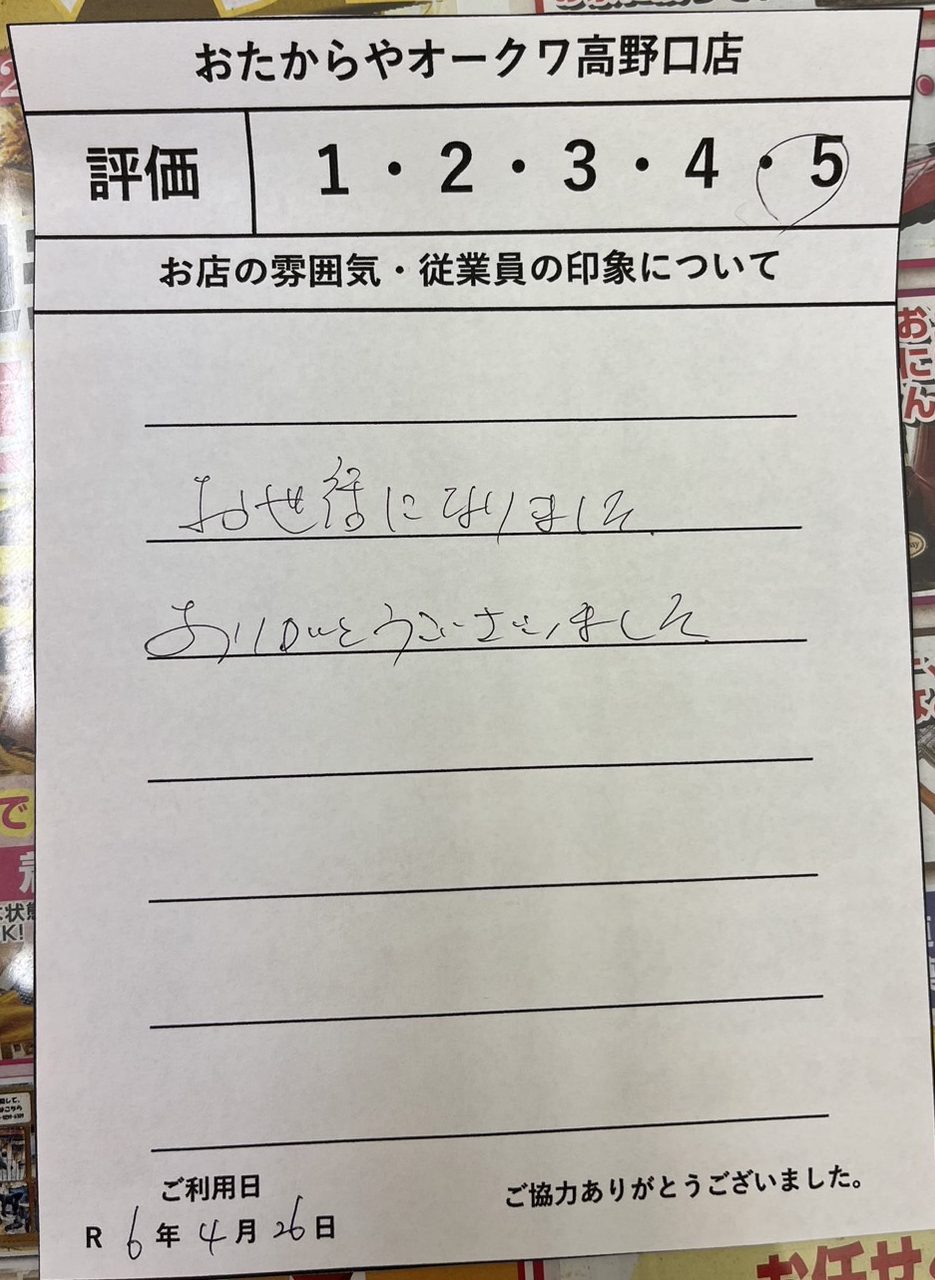 おたからやオークワ高野口店
評価 1・2・3・4・5
お店の雰囲気・従業員の印象について
お世話になりました
ありがとうございました
ご利用日
ご協力ありがとうございました。
R 6年 4月 26日
おにん
で
お任せ